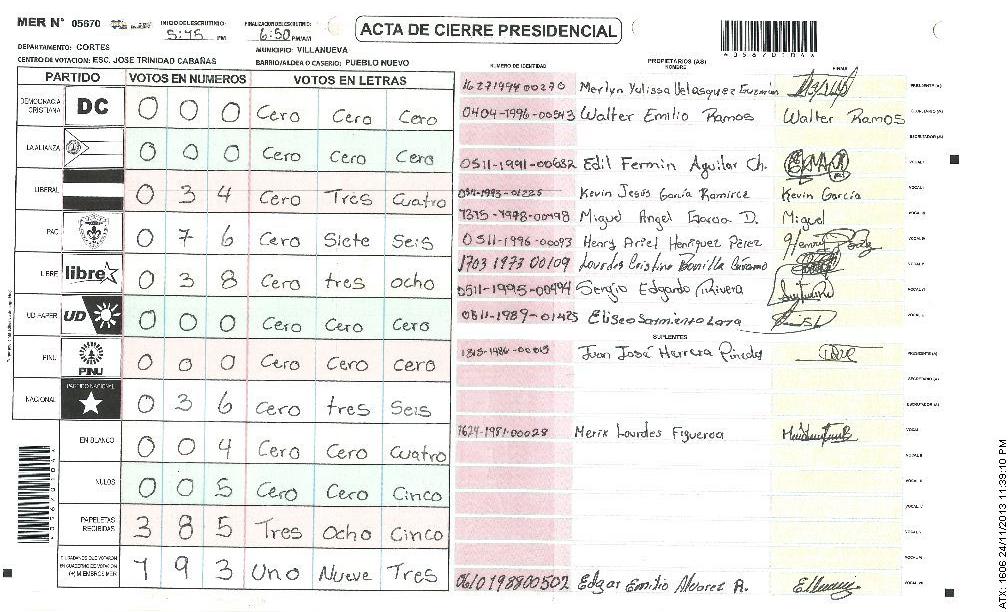 MER N° 05670
INICIO DE ESCRUTINIO: 5:45 PM
FINALIZACION DE ESCRUTINIO: 6:50 PM/AM
ACTA DE CIERRE PRESIDENCIAL
DEPARTAMENTO: CORTES
MUNICIPIO: VILLANUEVA
CENTRO DE VOTACION: ESC. JOSE TRINIDAD CABAÑAS
BARRIO/ALDEA O CASERIO: PUEBLO NUEVO
PARTIDO VOTOS EN NUMEROS VOTOS EN LETRAS
DEMOCRACIA CRISTIANA DC 0 0 0 Cero Cero Cero
LA ALIANZA 0 0 0 Cero Cero Cero
LIBERAL 0 3 4 Cero Tres Cuatro
PAC 0 7 6 Cero Siete Seis
LIBRE libre 0 3 8 Cero tres ocho
UD FAPER UD 0 0 0 Cero Cero Cero
PINU PINU 0 0 0 Cero Cero Cero
NACIONAL PARTIDO NACIONAL 0 3 6 Cero tres Seis
EN BLANCO 0 0 4 Cero Cero Cuatro
NULOS 0 0 5 Cero Cero Cinco
PAPELETAS RECIBIDAS 3 8 5 Tres Ocho Cinco
CIUDADANOS QUE VOTARON EN CUADERNO DE VOTACION (+) MIEMBROS MER 1 9 3 Uno Nueve Tres
NUMERO DE IDENTIDAD PROPIETARIOS (AS) NOMBRE FIRMA
1627199400270 Merlyn Yulissa Velasquez Guzman PRESIDENTE (A)
0404-1996-00543 Walter Emilio Ramos Walter Ramos SECRETARIO (A)
ESCRUTADOR (A)
0511-1991-00682 Edil Fermin Aguilar Ch. VOCAL I
Kevin Jesús García Ramirez Kevin García
Miguel Angel Garcia D. Miguel
0511-1996-00093 Henry Ariel Henriquez Pérez
1703 1973 00109 Lourdes Cristina Bonilla
0511-1995-00494 Sergio Edgardo Rivera
0511-1989-01425 Eliseo Sarmiento Lara
SUPLENTES
Juan José Herrera Pineda PRESIDENTE (A)
SECRETARIO (A)
ESCRUTADOR (A)
1624-1981-00028 Merix Lourdes Figueroa VOCAL I
0610198800502 Edgar Emilio Alvarez A.
ATX-1606 24/11/2013 11:39:10 PM